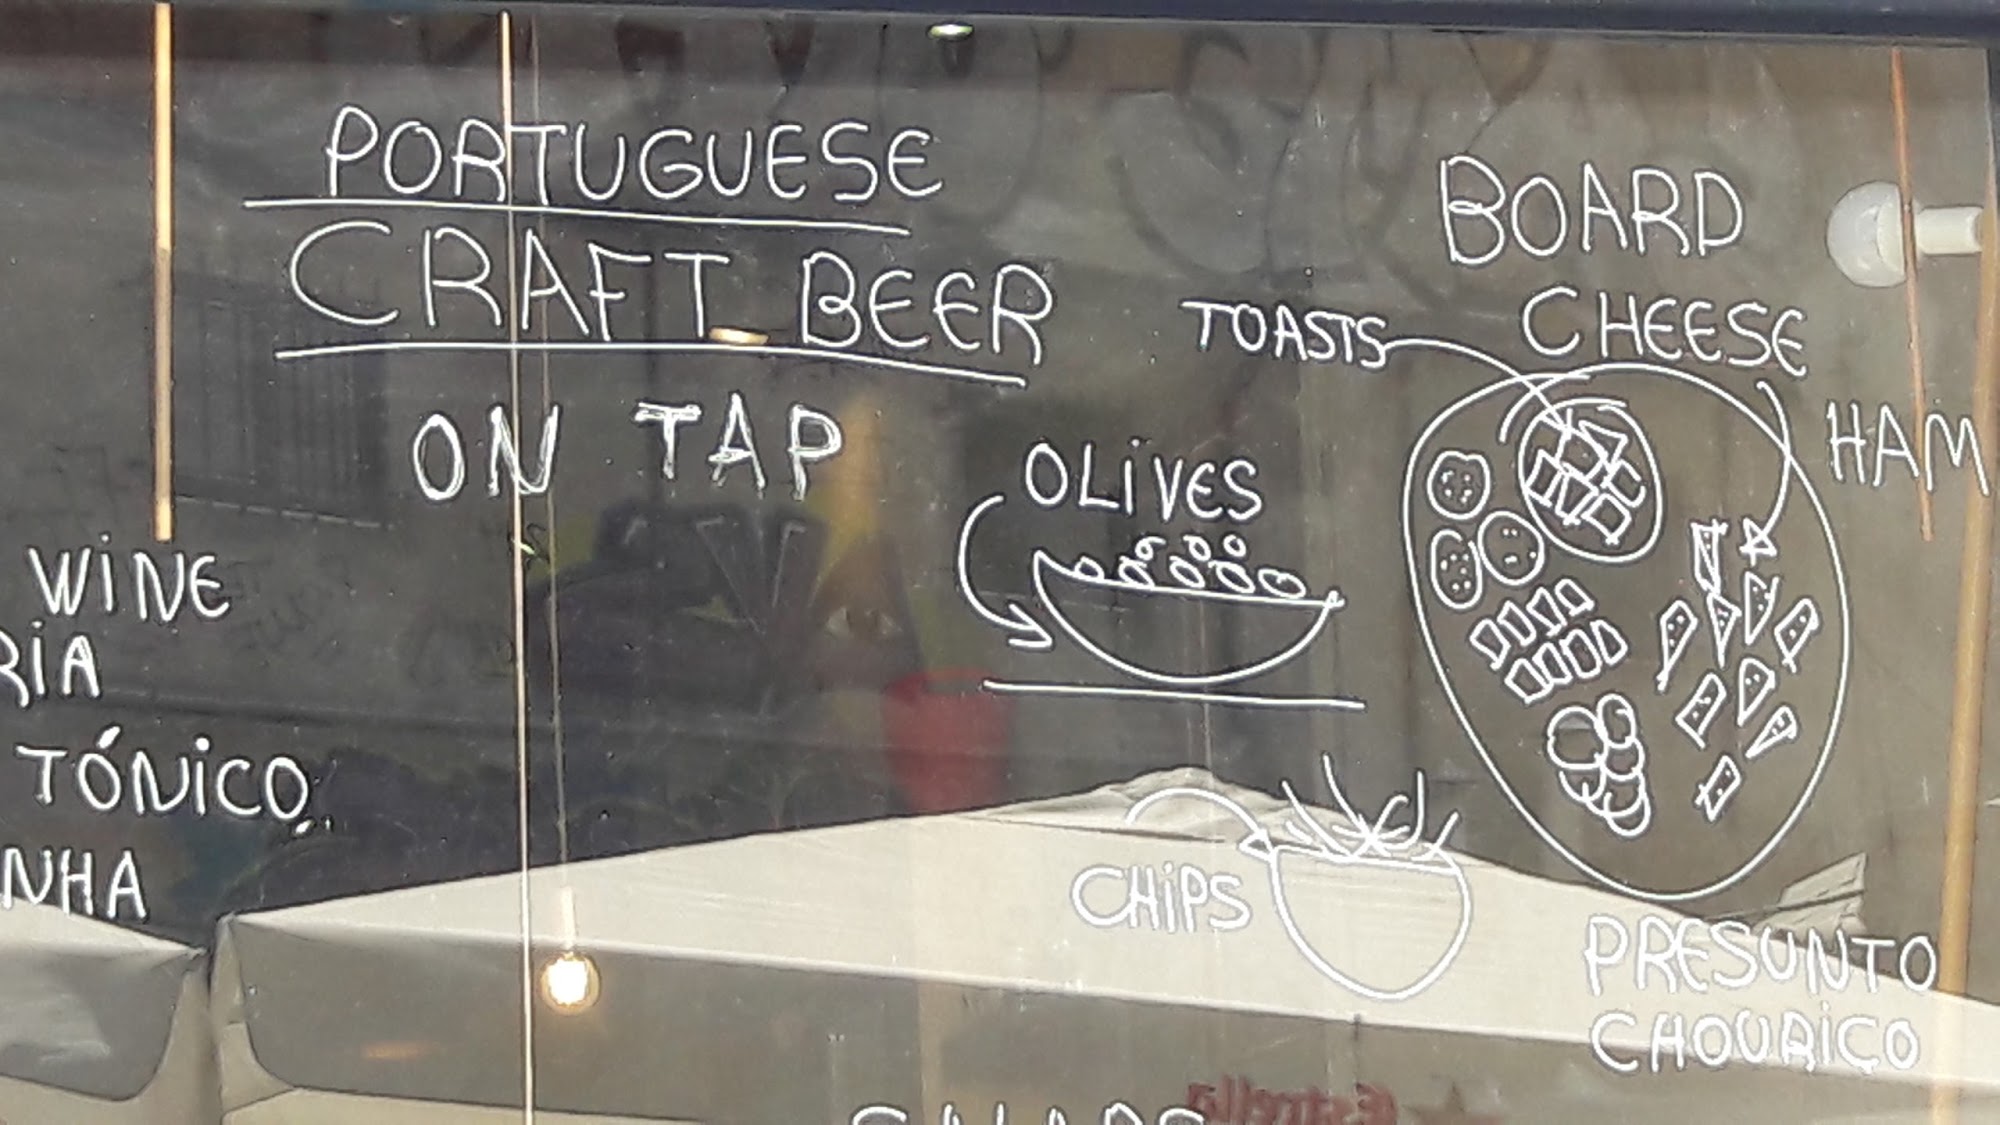 PORTUGUESE
CRAFT BEER
ON TAP
WINE
RIA
TÓNICO
NHA
OLIVES
CHIPS
TOASTS
BOARD
CHEESE
HAM
PRESUNTO
CHOURIÇO
Estrella